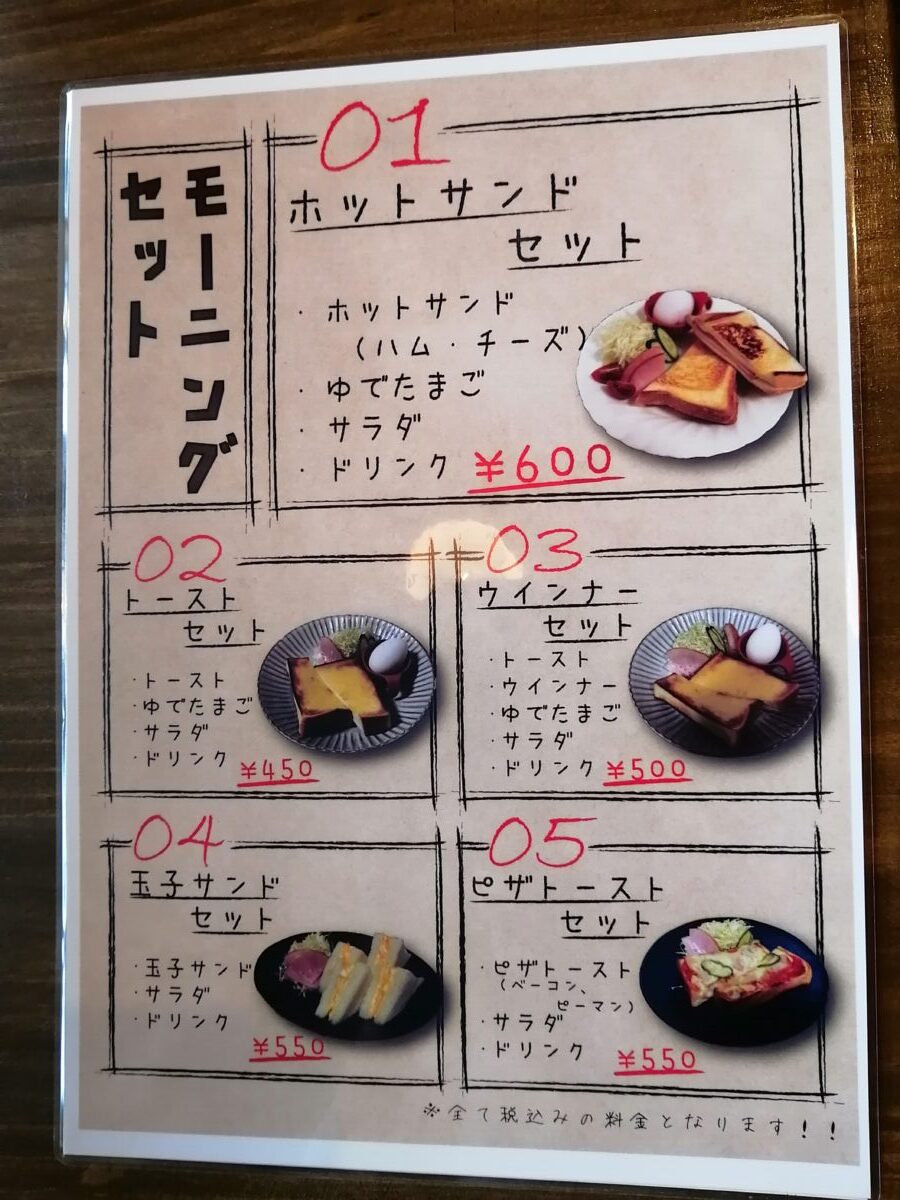 モーニング
セット
01
ホットサンド
セット
・ホットサンド
(ハム・チーズ)
・ゆでたまご
・サラダ
・ドリンク ¥600
02
トースト
セット
・トースト
・ゆでたまご
・サラダ
・ドリンク
¥450
03
ウインナー
セット
・トースト
・ウインナー
・ゆでたまご
・サラダ
・ドリンク ¥500
04
玉子サンド
セット
・玉子サンド
・サラダ
・ドリンク
¥550
05
ピザトースト
セット
・ピザトースト
(ベーコン、
ピーマン)
・サラダ
・ドリンク
¥550
※全て税込みの料金となります!!